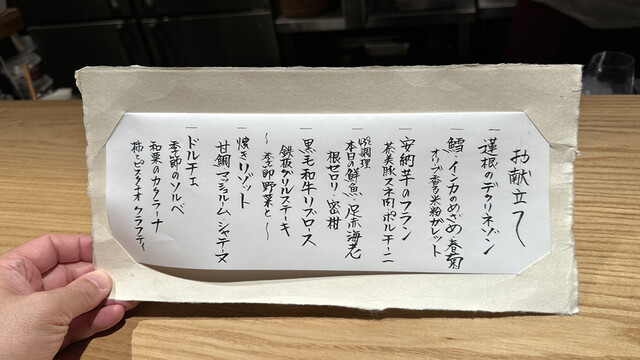 お献立て
一 蓮根のデクリネゾン
一 鱈・インカのめざめ 春菊
オリーブ香る米粉ガレット
一 安納芋のフラン
茶美豚スネ肉 ポルチーニ
一 本日の鮮魚・足赤海老
根セロリ・蜜柑
一 黒毛和牛リブロース
鉄板グリルステーキ
〜季節野菜と〜
一 焼きリゾット
甘鯛 マッシュルム シャテーヌ
一 ドルチェ
季節のソルベ
和栗のカタラーナ
柿とピスタチオ クラフティ